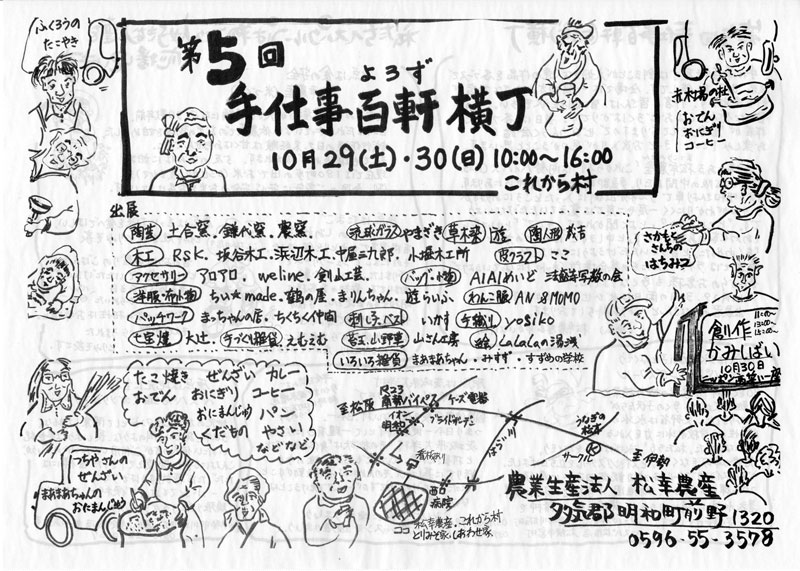 ふくろうの
たこやき
第5回
よろず
手仕事百軒横丁
10月29(土)・30(日) 10:00〜16:00
これから村
赤木場の杜
おでん
おにぎり
コーヒー
さかもと
さんちの
はちみつ
出展
陶芸 土合窯、鎌代窯、農窯、 琉球ガラス やまざき 草木染 遊
木工 RSK、坂谷木工、浜辺木工、中屋三九郎、小堀木工所 皮クラフト ここ
アクセサリー アロアロ、weline、創山工芸、 バッグ・小物 AIAIめいど
洋服・布小物 ちぃ★made、鶴の屋、まりんちゃん、遊らいふ わんこ服 AN&MOMO
パッチワーク まっちゃんの店、ちくちく仲間 いかす 手織り yosiko
七宝焼 大辻、手づくり雑貨 えむえむ 山さん工房 LaLaLaの湯浅
いろいろ雑貨 まあまあちゃん・みすず・すずめの学校
創作
かみしばい
10月30日
たこ焼き ぜんざい カレー
おでん おにぎり コーヒー
おにまんじゅう パン
くだもの やさい
などなど
つちやさんの
ぜんざい
まあまあちゃんの
おたまんじゅう
至松阪
R23
南勢バイパス
ケーズ電器
イオン
明和
ブライダルサンデー
はらい川
うなぎの
サークルK
至伊勢
看板あり
西口
病院
ココ
松幸農産、これから村
とりみそ家、しあわせ家、
農業生産法人 松幸農産
多気郡明和町前野1320
0596-55-3578